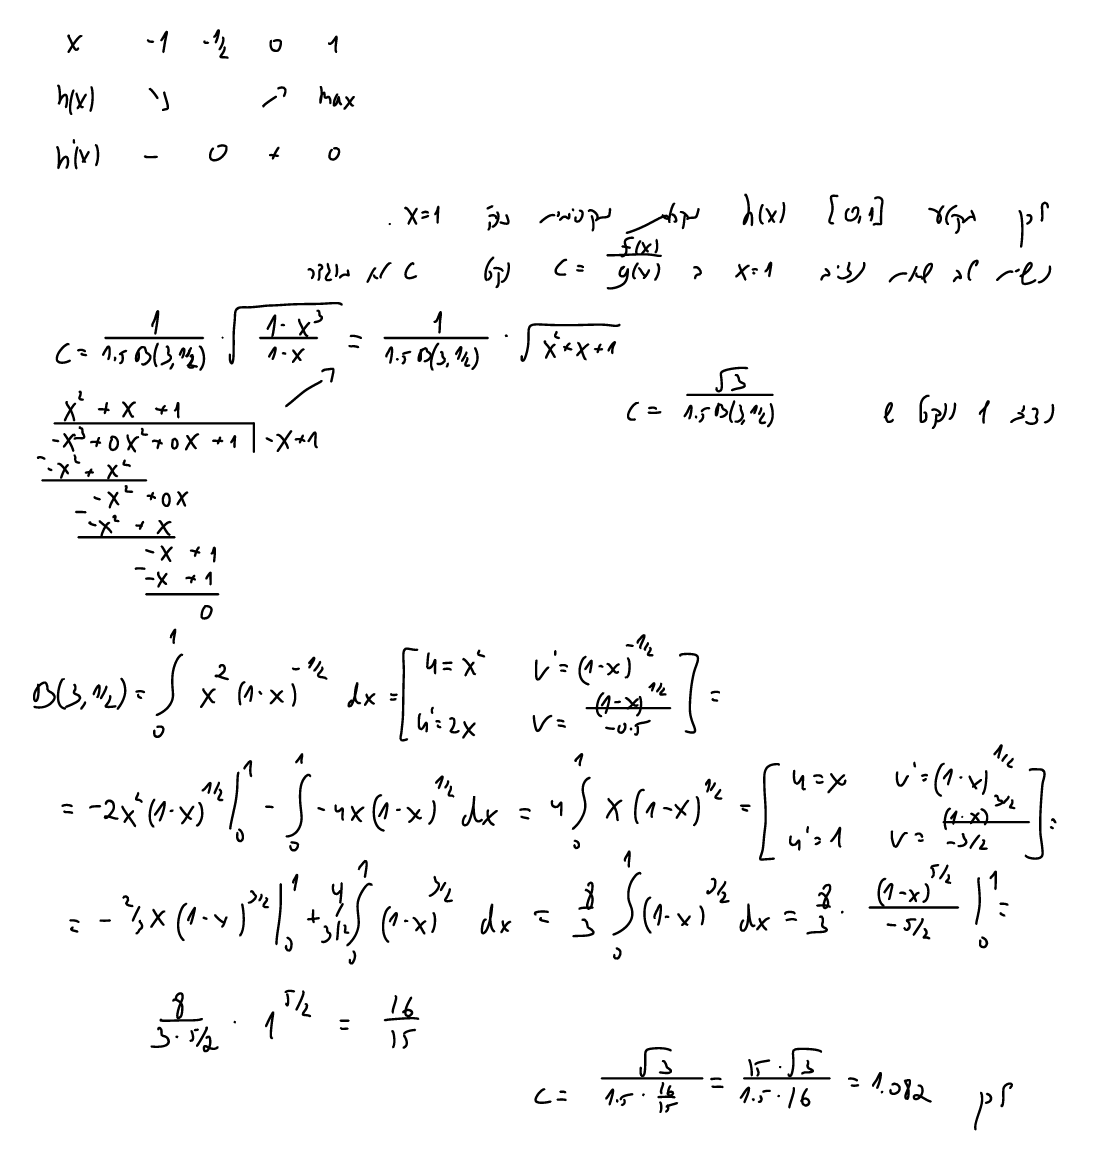 x -1 -1/2 0 1
h(x) ↘ ↗ max
h'(x) - 0 + 0
לכן עבור [0,1] h(x) נקבל מקסימום x=1 .
נשים לב שאם נציב x=1 ב C = f(x)/g(x) נקבל C לא מוגדר
C = 1/(1.5 B(3,1/2)) · √((1-x³)/(1-x)) = 1/(1.5 B(3,1/2)) · √(x²+x+1)
נציב 1 ונקבל ש C = √3/(1.5 B(3,1/2))
x² + x + 1
-x³+0x²+0x+1 | -x+1
- -x² + x²
-x² + 0x
- -x² + x
-x + 1
- -x + 1
0
B(3,1/2) = ∫₀¹ x² (1-x)^(-1/2) dx = [u=x² v'=(1-x)^(-1/2) u'=2x v=(1-x)^(1/2)/-0.5] =
= -2x²(1-x)^(1/2) |₀¹ - ∫₀¹ -4x(1-x)^(1/2) dx = 4∫₀¹ x(1-x)^(1/2) = [u=x v'=(1-x)^(1/2) u'=1 v=(1-x)^(3/2)/(-3/2)] =
= -2/3 x (1-x)^(3/2) |₀¹ + 4/(3/2) ∫₀¹ (1-x)^(3/2) dx = 8/3 ∫₀¹ (1-x)^(3/2) dx = 8/3 · (1-x)^(5/2)/(-5/2) |₀¹ =
8/(3·5/2) · 1^(5/2) = 16/15
לכן C = √3/(1.5 · 16/15) = 15·√3/(1.5·16) = 1.082